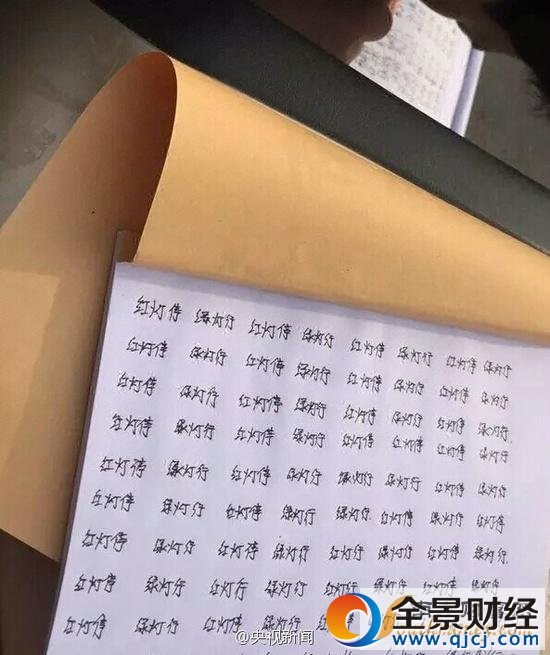 红灯停 绿灯行 红灯停 绿灯行 红灯停 绿灯行 红灯停 绿灯行
红灯停 绿灯行 红灯停 绿灯行 红灯停 绿灯行 红灯停 绿灯行
红灯停 绿灯行 红灯停 绿灯行 红灯停 绿灯行 红灯停 绿灯行
红灯停 绿灯行 红灯停 绿灯行 红灯停 红灯停 红灯停 绿灯行
红灯停 绿灯行 红灯停 绿灯行 绿灯行
红灯停 绿灯行 红灯停 绿灯行 绿灯行 红灯停 绿灯行 红灯停
红灯停 绿灯行 红灯停 绿灯行 红灯停 绿灯行 红灯停 绿灯行
红灯停 绿灯行 红灯行 红灯停 红灯行 绿灯行 红灯停 绿灯行
红灯停 绿灯行 红灯停 绿灯行
@央视新闻
全景财经
www.qjcj.com